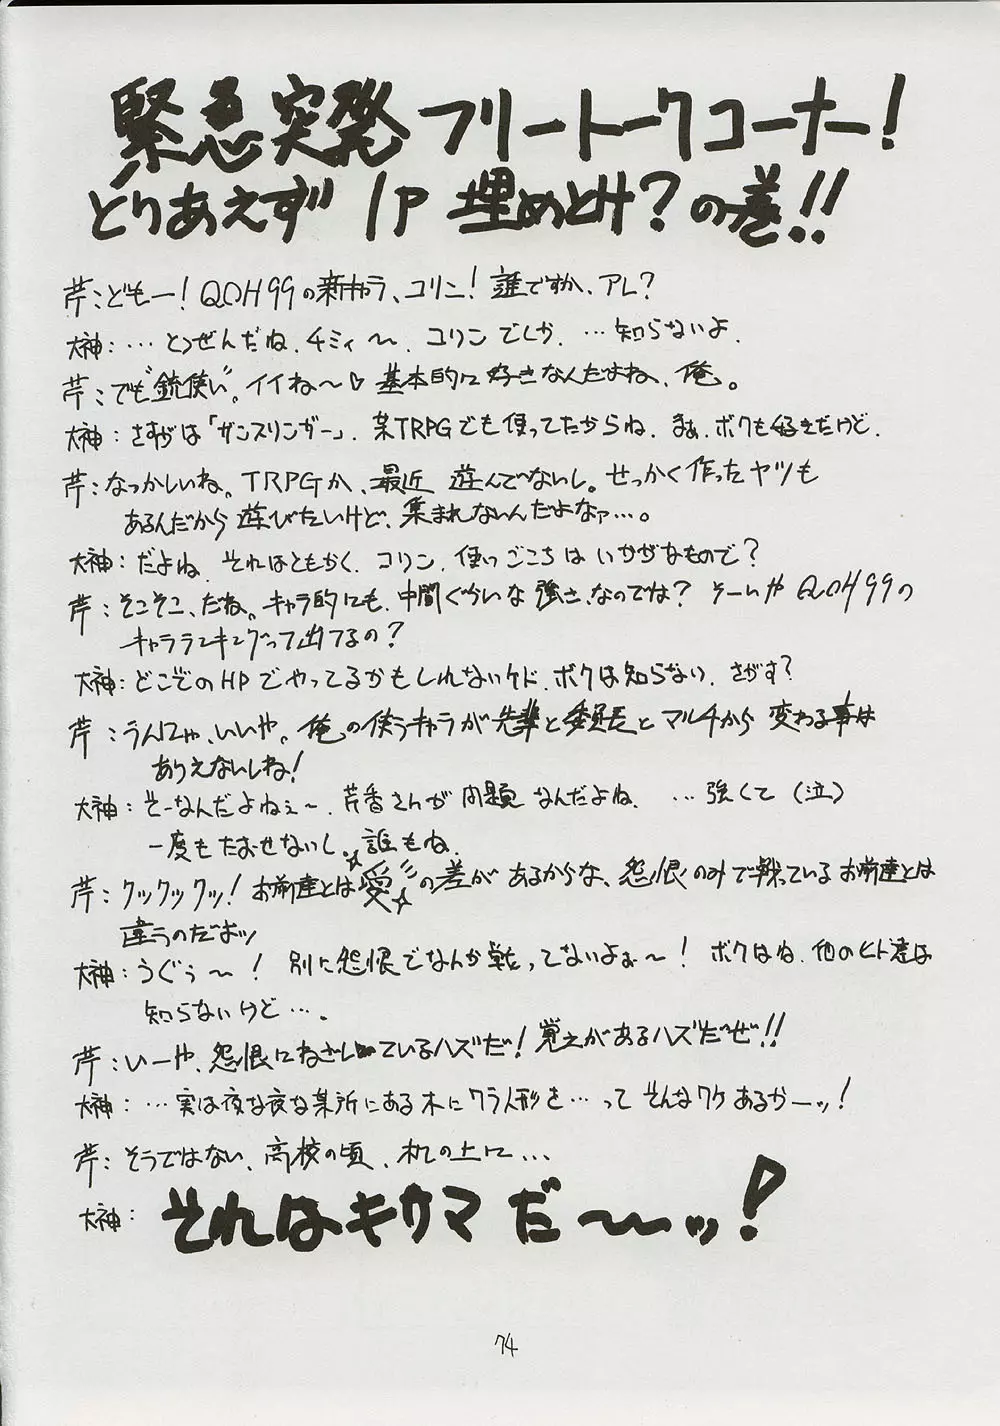 緊急突発フリートークコーナー!
とりあえず1P埋めとけ?の巻!!
芹:どもー!QOH99の新キャラ、コリン!誰ですか、アレ?
大神:…とつぜんだね、チミィ〜。コリンでしか。…知らないよ。
芹:でも“銃使い”。イイね〜♡基本的に好きなんだよね、俺。
大神:さすがは「ガンスリンガー」。某TRPGでも使ってたからね。まあ、ボクも好きだけど。
芹:なっかしいね。TRPGか、最近遊んでないし。せっかく作ったヤツも
あるんだから遊びたいけど、集まれないんだよなァ…。
大神:だよね。それはともかく、コリン、使いごこちはいかがなもので?
芹:そこそこ、だね。キャラ的にも、中間ぐらいな強さ、なのでは?そーいやQOH99の
キャラランキングって出てるの?
大神:どこぞのHPでやってるかもしれないケド、ボクは知らない。さがす?
芹:うんにゃ、いいや。俺の使うキャラが先輩と委員長とマルチから変わる事は
ありえないしね!
大神:そーなんだよねぇ〜。芹香さんが問題なんだよね。…強くて(泣)
一度もたおせないし。誰もね。
芹:クックックッ!お前達とは☆愛☆の差があるからな、怨恨のみで戦っているお前達とは
違うのだよッ
大神:うぐぅ〜!別に怨恨でなんか戦ってないよぉ〜!ボクはね、他のヒト達は
知らないけど…。
芹:いーや、怨恨にねざしているハズだ!覚えがあるハズだぜ!!
大神:…実は夜な夜な某所にある木にワラ人形を…ってそんなワケあるかーッ!
芹:そうではない、高校の頃、机の上に…
大神:それはキサマだ〜〜ッ!
74